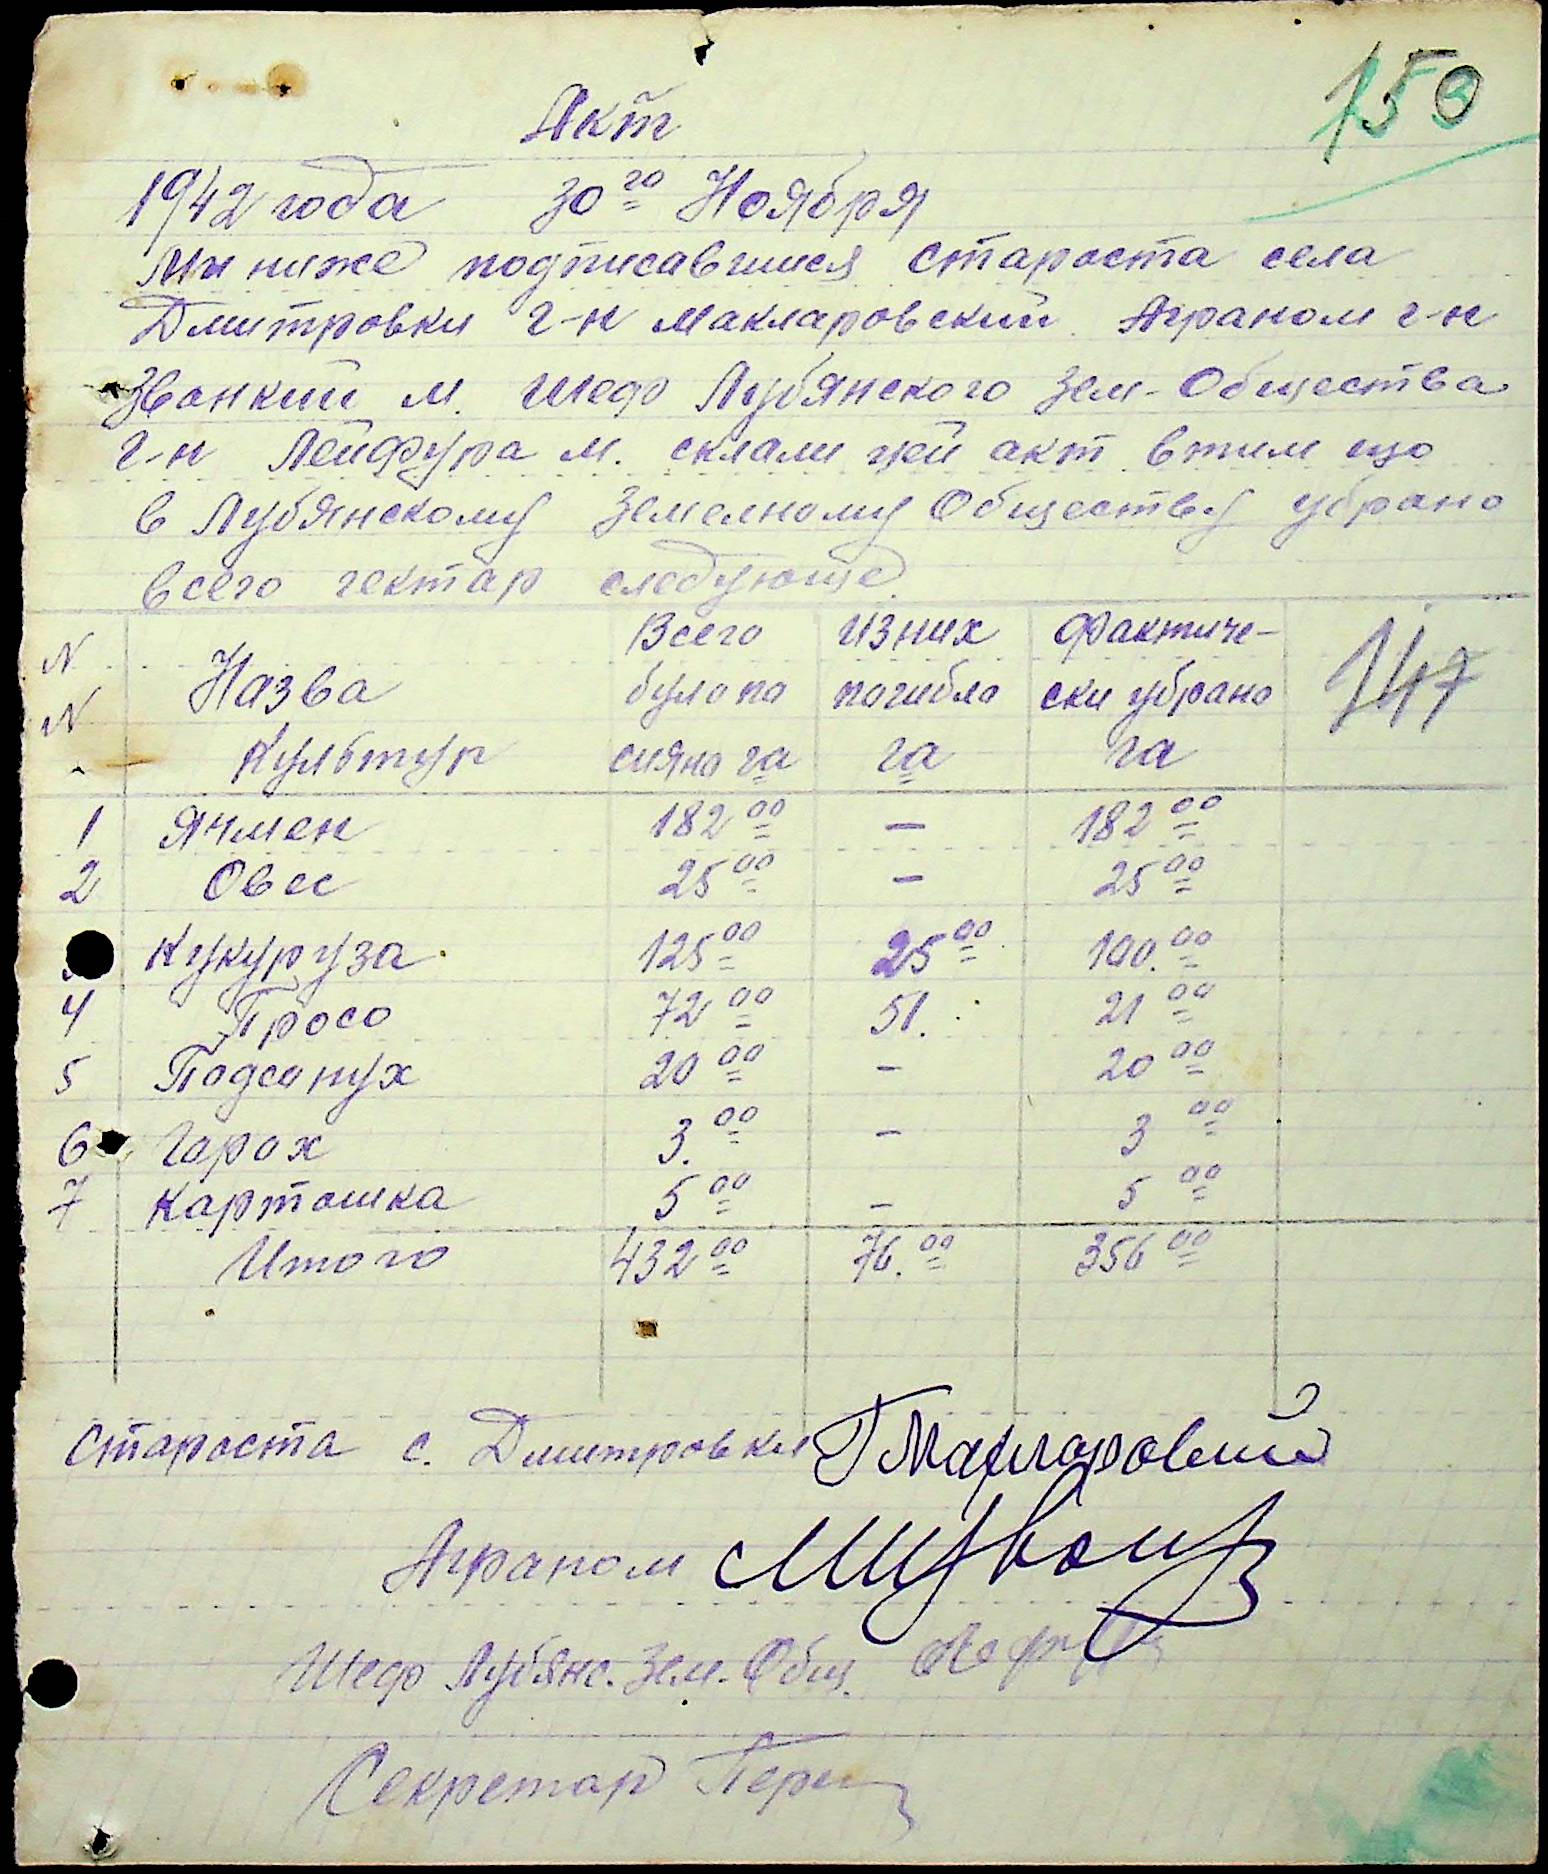 150
Акт
1942 года 30го Ноября
Мы ниже подписавшиися староста села
Дмитровки г-н Макларовский Аграном г-н
Званкий м. Шеф Лубянского Зем-Общества
г-н Лейфура м. склали цей акт втим що
в Лубянскому Земелному Обществу убрано
всего гектар следующе
N N Назва Культур Всего було по сияно га Из них погибло га Фактиче-ски убрано га
147
1 Ячмен 182 00 — 182 00
2 Овес 25 00 — 25 00
Кукуруза 125 00 25 00 100. 00
4 Просо 72 00 51. 21 00
5 Подсонух 20 00 - 20 00
6 Гарох 3. 00 - 3 00
7 Картошка 5 00 - 5 00
Итого 432 00 76. 00 356 00
Староста с. Дмитровки Макларовский
Аграном
Шеф Лубянс. Зем. Общ.
Секретар